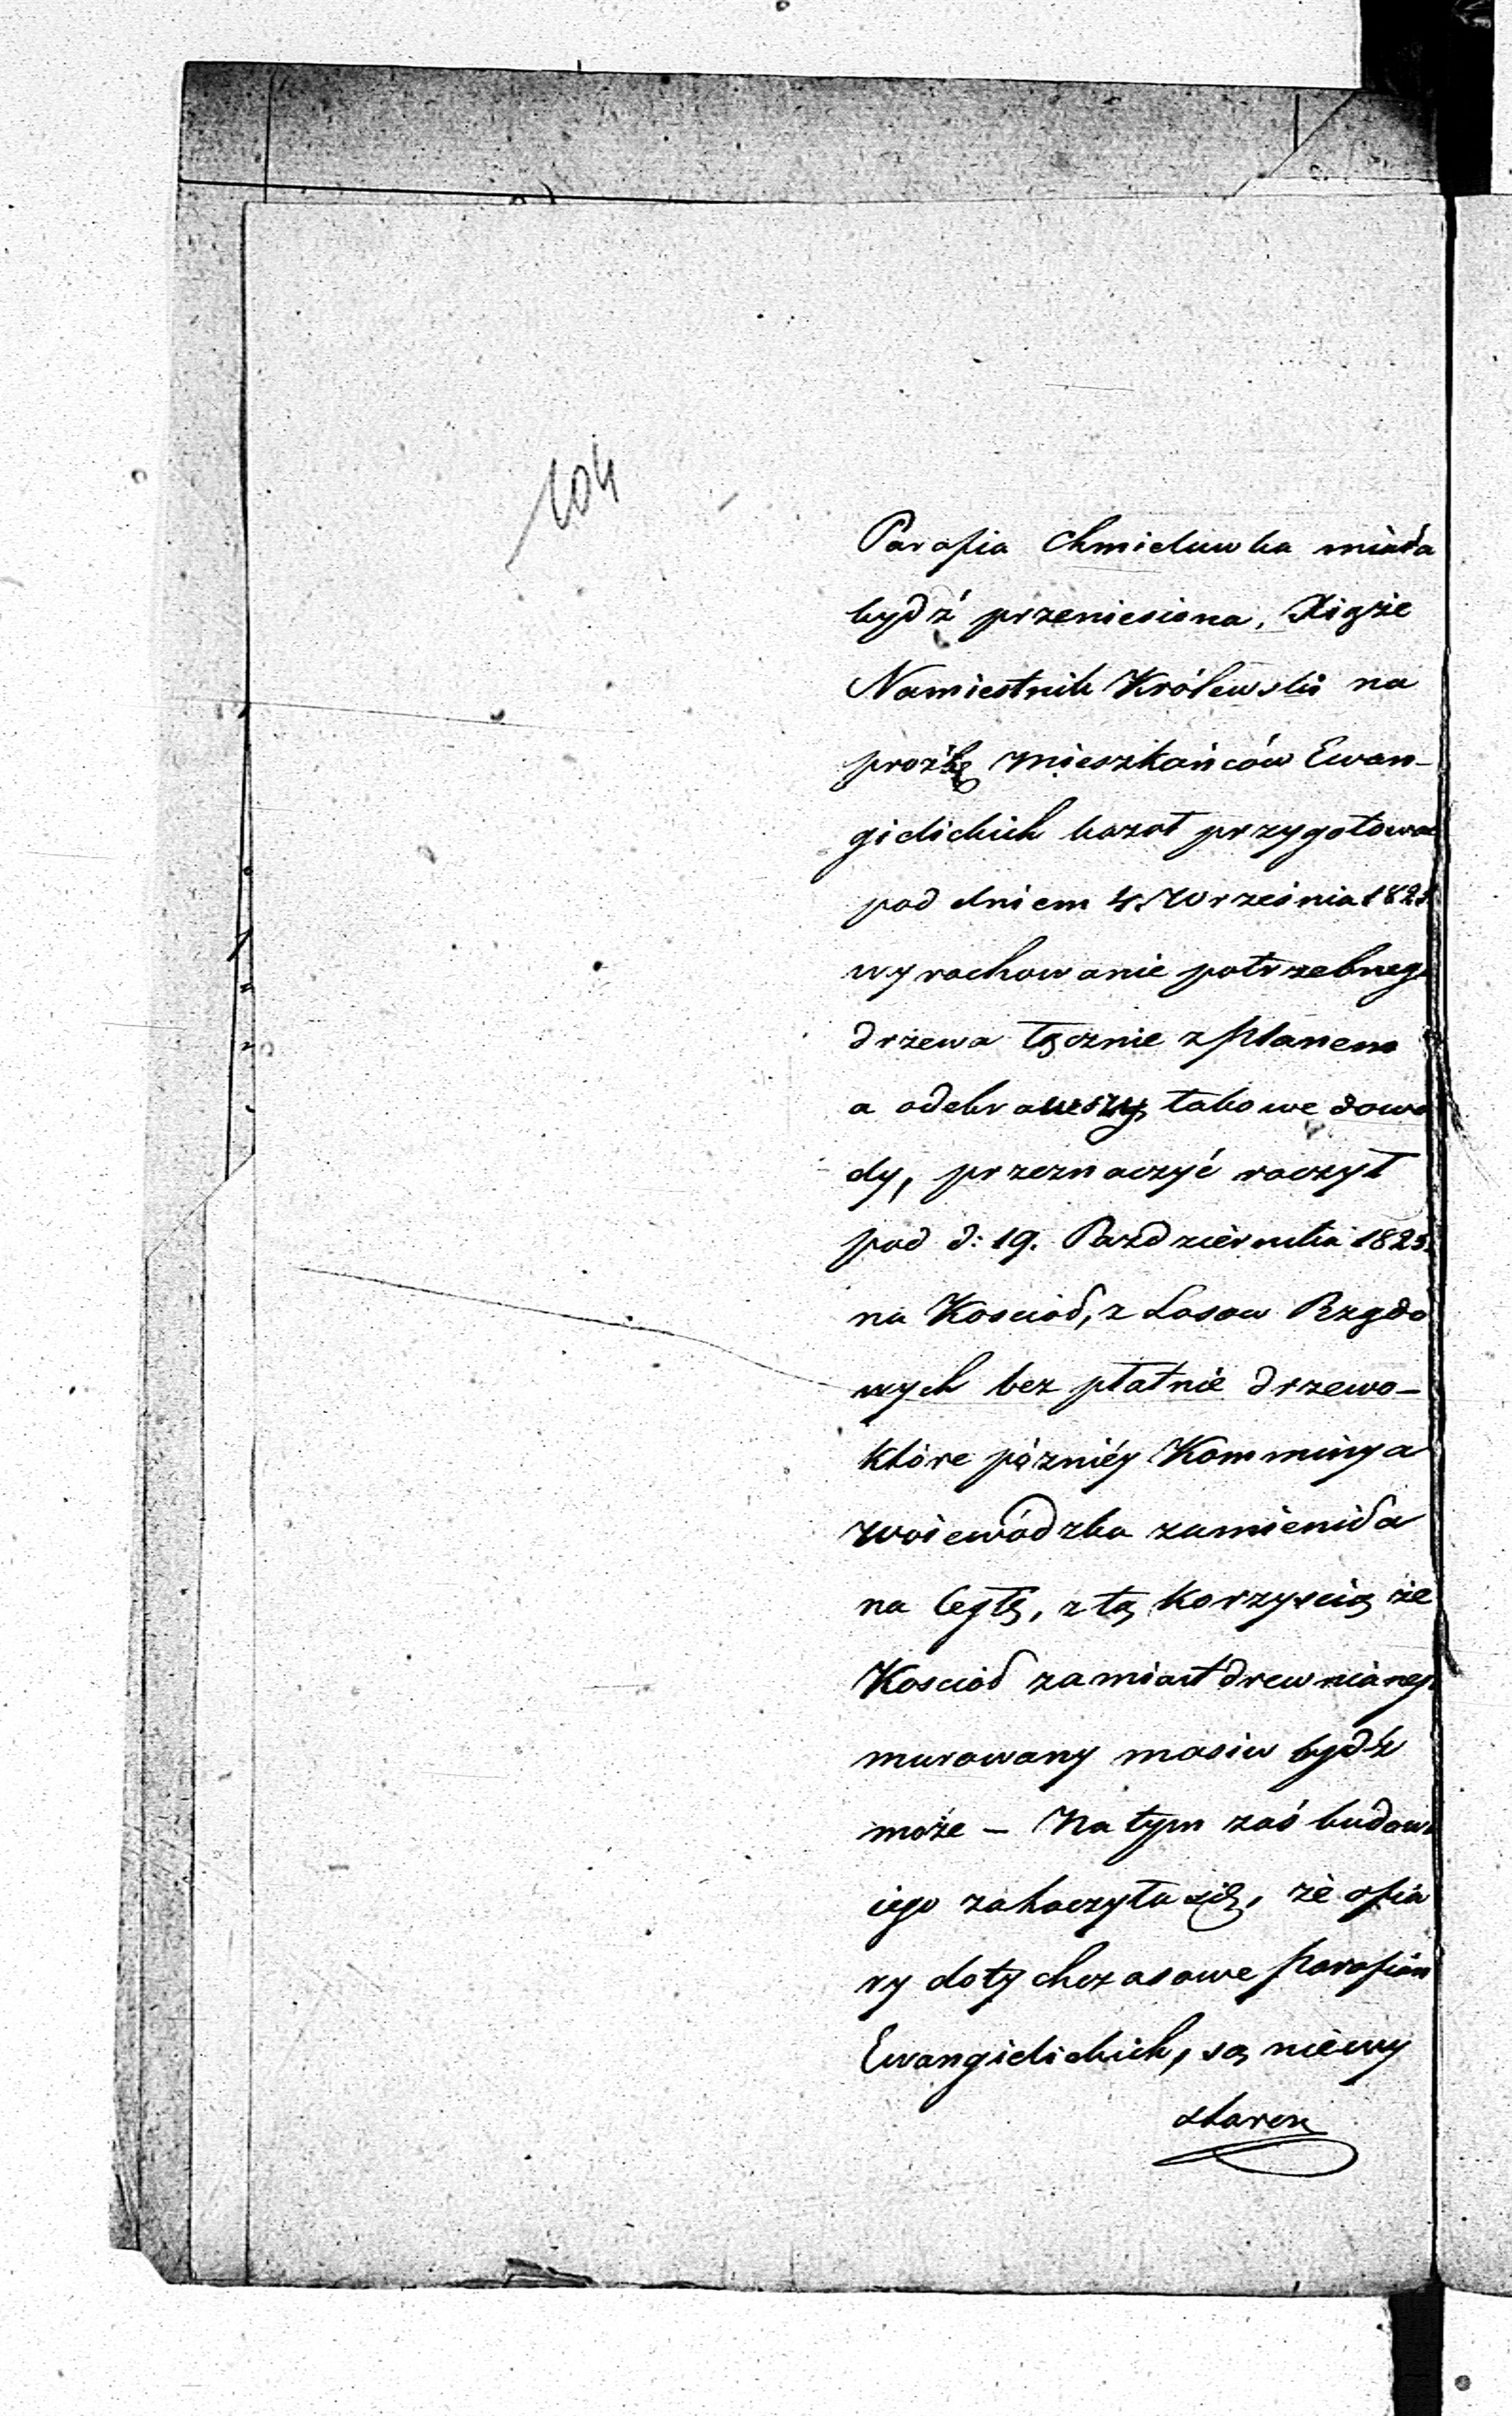 104
Parafia Chmielewska miała
bydź przeniesiona, Xiąże
Namiestnik Królewski na
prożbę Mieszkańców Ewan-
gielickich kazał przygotowac
pod dniem 4. Września 1823
wyrachowanie potrzebnego
drzewa łącznie z planem
a odebrawszy takowe dowo
dy, przeznaczyć raczył
pod d: 19. Pazdziernika 1823.
na Kosciół, z Lasow Rządo
wych bez płatnie drzewo-
które pózniéy Kommissya
Woiewódzka zamieniła
na Cegłę, z tą korzyscią że
Kosciół zamiast drewnianego
murowany masiw bydź
może - Na tym zaś budowa
iego zahaczyła się, że ofia
ry dotychczasowe Parafian
Ewangielickich, są niewy
starcz